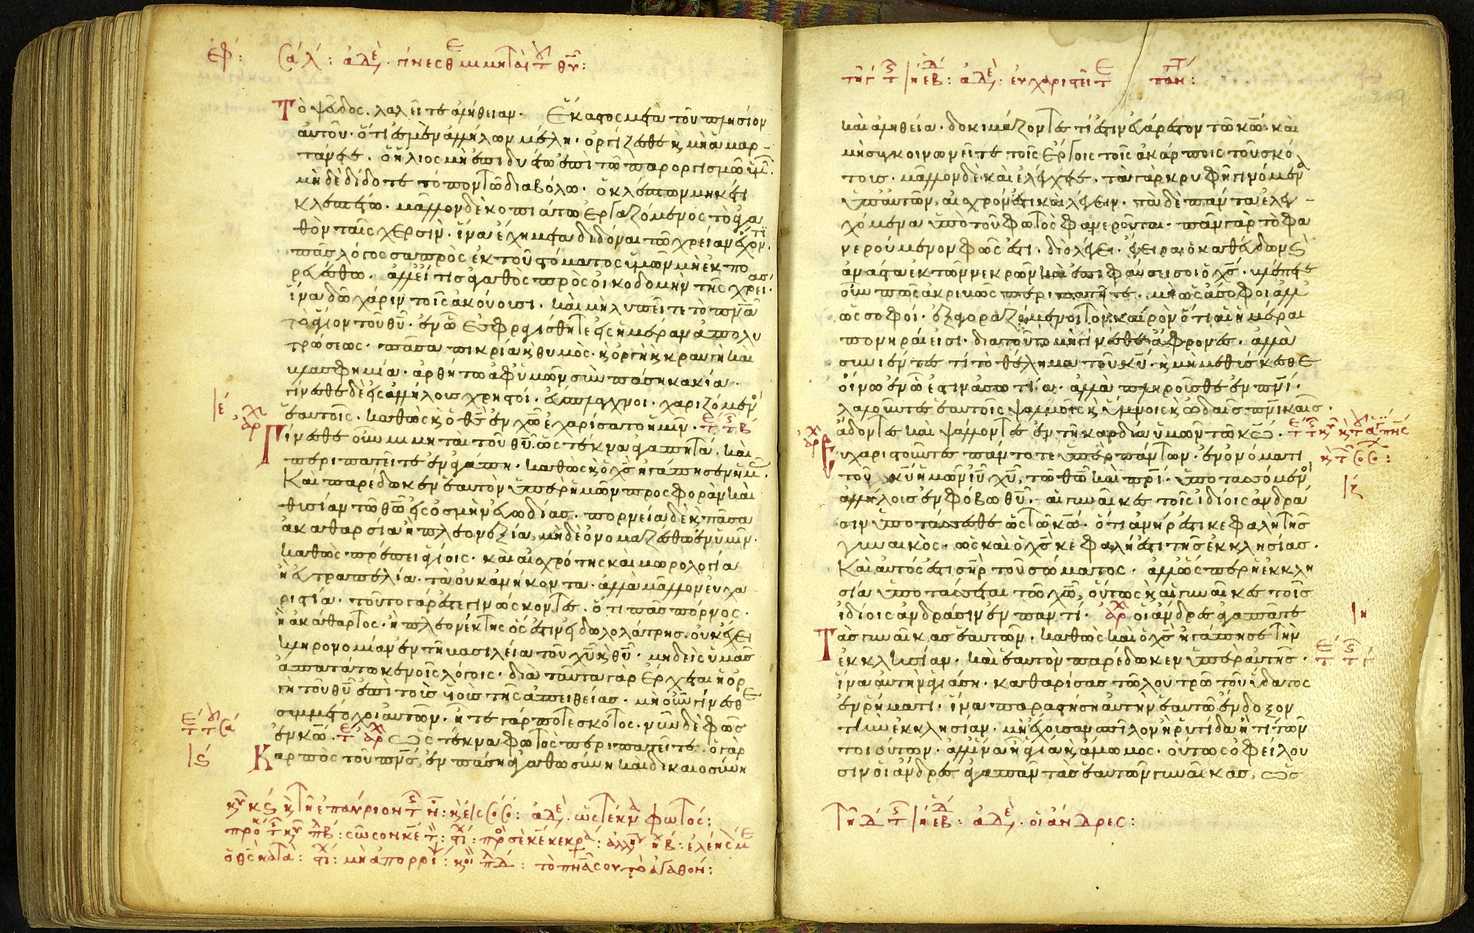 τὸ ψεῦδος. λαλεῖτε ἀλήθειαν. ἕκαστος μετὰ τοῦ πλησίον
αὐτοῦ. ὅτι ἐσμὲν ἀλλήλων μέλη. ὀργίζεσθε κ μὴ ἁμαρ
τάνετε. ὁ ἥλιος μὴ ἐπιδυέτω ἐπὶ τῶ παροργισμῶ ὑμῶν.
μὴ δὲ δίδοτε τόπον τῶ διαβόλω. ὁ κλέπτων μηκέτι
κλεπτέτω. μᾶλλον δὲ κοπιάτω ἐργαζόμενος τὸ ἀγα
θὸν ταῖς χερσίν. ἵνα ἔχη μεταδιδόναι τῶ χρείαν ἔχοντι.
πᾶς λόγος σαπρὸς ἐκ τοῦ στόματος ὑμῶν μὴ ἐκπο
ρευέσθω. ἀλλ' εἴ τις ἀγαθὸς πρὸς οἰκοδομὴν τῆς χρείας.
ἵνα δῶ χάριν τοῖς ἀκούουσι. καὶ μὴ λυπεῖτε τὸ πνα
τὸ ἅγιον τοῦ θυ. ἐν ὧ ἐσφραγίσθητε εἰς ἡμέραν ἀπολυ
τρώσεως. πᾶσα πικρία κ θυμὸς. κ ὀργὴ κ κραυγὴ καὶ
βλασφημία. ἀρθήτω ἀφ' ὑμῶν σὺν πάση κακία.
γίνεσθε δὲ εἰς ἀλλήλους χρηστοί. εὔσπλαγχνοι. χαριζόμενοι
ἑαυτοῖς. καθὼς κ ὁ θς ἐν χω ἐχαρίσατο ἡμῖν.
Γίνεσθε οὖν μιμηταὶ τοῦ θυ. ὡς τέκνα ἀγαπητά. καὶ
περιπατεῖτε ἐν ἀγάπη. καθὼς κ ὁ χς ἠγάπησεν ἡμᾶς.
Καὶ παρέδωκεν ἑαυτὸν ὑπὲρ ἡμῶν προσφορὰν καὶ
θυσίαν τῶ θω εἰς ὀσμὴν εὐωδίας. πορνεία δὲ κ πᾶσα
ἀκαθαρσία ἢ πλεονεξία. μηδὲ ὀνομαζέσθω ἐν ὑμῖν.
καθὼς πρέπει ἁγίοις. καὶ αἰσχρότης καὶ μωρολογία
ἢ εὐτραπελία. τὰ οὐκ ἀνήκοντα. ἀλλὰ μᾶλλον εὐχα
ριστία. τοῦτο γάρ ἐστε γινώσκοντες. ὅτι πᾶς πόρνος.
ἢ ἀκάθαρτος. ἢ πλεονέκτης ὅς ἐστιν εἰδωλολάτρης. οὐκ ἔχει
κληρονομίαν ἐν τῆ βασιλεία τοῦ χυ κ θυ. μηδεὶς ὑμᾶς
ἀπατάτω κενοῖς λόγοις. διὰ ταῦτα γὰρ ἔρχεται ἡ ὀρ
γὴ τοῦ θυ ἐπὶ τοὺς υἱοὺς τῆς ἀπειθείας. μὴ οὖν γίνεσθε
συμμέτοχοι αὐτῶν. ἦτε γάρ ποτε σκότος. νῦν δὲ φῶς
ἐν κω. ὡς τέκνα φωτὸς περιπατεῖτε. ὁ γὰρ
Καρπὸς τοῦ πνς, ἐν πάση ἀγαθωσύνη καὶ δικαιοσύνη
καὶ ἀληθεία. δοκιμάζοντες τί ἐστιν εὐάρεστον τῶ κω. καὶ
μὴ συγκοινωνεῖτε τοῖς ἔργοις τοῖς ἀκάρποις τοῦ σκό
τους. μᾶλλον δὲ καὶ ἐλέγχετε. τὰ γὰρ κρυφῆ γινόμενα
ὑπ' αὐτῶν, αἰσχρόν ἐστι καὶ λέγειν. τὰ δὲ πάντα ἐλεγ
χόμενα ὑπὸ τοῦ φωτὸς φανεροῦνται. πᾶν γὰρ τὸ φα
νερούμενον φῶς ἐστι. διὸ λέγει. ἔγειραι ὁ καθεύδων κ
ἀνάστα ἐκ τῶν νεκρῶν καὶ ἐπιφαύσει σοι ὁ χς. βλέπετε
οὖν πῶς ἀκριβῶς περιπατεῖτε. μὴ ὡς ἄσοφοι ἀλλ'
ὡς σοφοί. ἐξαγοραζόμενοι τὸν καιρὸν ὅτι αἱ ἡμέραι
πονηραί εἰσι. διὰ τοῦτο μὴ γίνεσθε ἄφρονες. ἀλλὰ
συνιέντες τί τὸ θέλημα τοῦ κυ. κ μὴ μεθύσκεσθε
οἴνω ἐν ὧ ἐστιν ἀσωτία. ἀλλὰ πληροῦσθε ἐν πνι.
λαλοῦντες ἑαυτοῖς ψαλμοῖς κ ὕμνοις κ ὠδαῖς πνικαῖς.
ἄδοντες καὶ ψάλλοντες ἐν τῆ καρδία ὑμῶν τῶ κω.
Εὐχαριστοῦντες πάντοτε ὑπὲρ πάντων. ἐν ὀνόματι
τοῦ κυ ἡμῶν ιυ χυ, τῶ θω καὶ πρι. ὑποτασσόμενοι
ἀλλήλοις ἐν φόβω θυ. αἱ γυναῖκες τοῖς ἰδίοις ἀνδρά
σιν ὑποτάσσεσθε ὡς τῶ κω. ὅτι ἀνήρ ἐστι κεφαλὴ τῆς
γυναικός. ὡς καὶ ὁ χς κεφαλή ἐστι τῆς ἐκκλησίας.
Καὶ αὐτός ἐστι σηρ τοῦ σώματος. ἀλλ' ὥσπερ ἡ ἐκκλη
σία ὑποτάσσεται τῶ χω, οὕτως καὶ αἱ γυναῖκες τοῖς
ἰδίοις ἀνδράσιν ἐν παντί. οἱ ἄνδρες ἀγαπᾶτε
Τὰς γυναῖκας ἑαυτῶν. καθὼς καὶ ὁ χς ἠγάπησε τὴν
ἐκκλησίαν. καὶ ἑαυτὸν παρέδωκεν ὑπὲρ αὐτῆς.
ἵνα αὐτὴν ἁγιάση. καθαρίσας τῶ λουτρῶ τοῦ ὕδατος
ἐν ῥήματι. ἵνα παραστήση αὐτὴν ἑαυτῶ ἔνδοξον
τὴν ἐκκλησίαν. μὴ ἔχουσαν σπίλον ἢ ῥυτίδα ἤ τι τῶν
τοιούτων. ἀλλ' ἵνα ἦ ἁγία κ ἄμωμος. οὕτως ὀφείλου
σιν οἱ ἄνδρες ἀγαπᾶν τὰς ἑαυτῶν γυναῖκας, ὡς
οἱ ἄνδρες: